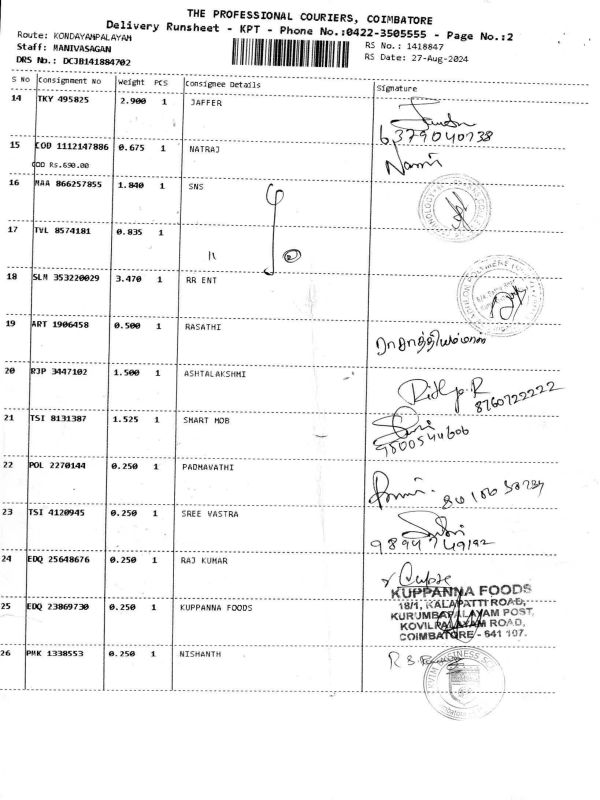 THE PROFESSIONAL COURIERS, COIMBATORE
Delivery Runsheet - KPT - Phone No.:0422-3505555 - Page No.:2
Route: KONDAYAMPALAYAM
Staff: MANIVASAGAN
DRS No.: DCJB141884702
RS No.: 1418847
RS Date: 27-Aug-2024
S No Consignment No Weight PCS Consignee Details Signature
14 TKY 495825 2.900 1 JAFFER
15 COD 1112147886 0.675 1 NATRAJ
COD Rs.690.00
16 MAA 866257855 1.840 1 SNS
17 TVL 8574181 0.835 1 "
18 SLM 353220029 3.470 1 RR ENT
19 ART 1906458 0.500 1 RASATHI
20 RJP 3447102 1.500 1 ASHTALAKSHMI
8760722222
21 TSI 8131387 1.525 1 SMART MOB
9500544606
22 POL 2270144 0.250 1 PADMAVATHI
23 TSI 4120945 0.250 1 SREE VASTRA
9894749192
24 EDQ 25648676 0.250 1 RAJ KUMAR
25 EDQ 23869730 0.250 1 KUPPANNA FOODS
KUPPANNA FOODS
18/1, KALAPATTI ROAD,
KURUMBAPALAYAM POST,
KOVILPALAYAM ROAD,
COIMBATORE - 641 107.
26 PMK 1338553 0.250 1 NISHANTH